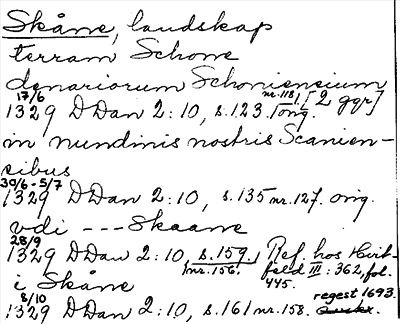 Skåne, landskap
terram Schone
denariorum Schoniensium
17/6
1329 DDan 2:10, s.123. nr.118 orig. [2 ggr]
in nundinis nostris Scanien-
sibus
30/6-5/7
1329 DDan 2:10, s.135 nr.127. orig.
vdi --- Skaane
28/9
1329 DDan 2:10, s.159, nr.156. Ref. hos Hvit-
feld III:362, fol. 445.
i Skåne
8/10
1329 DDan 2:10, s.161 nr.158. regest 1693.